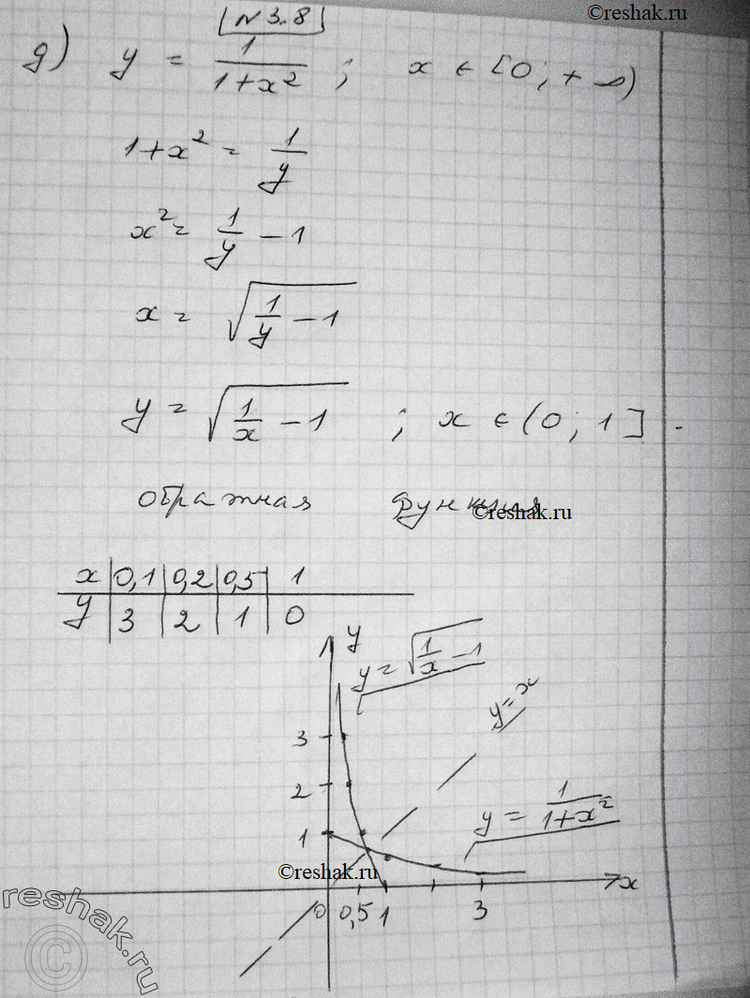 ©reshak.ru
№3.8
д) y = 1/(1+x²) ; x ∈ [0; +∞)
1+x² = 1/y
x² = 1/y − 1
x = √(1/y − 1)
y = √(1/x − 1) ; x ∈ (0; 1].
обратная функция
©reshak.ru
x 0,1 0,2 0,5 1
y 3 2 1 0
y
y = √(1/x − 1)
y = x
3
2
1
y = 1/(1+x²)
©reshak.ru
x
0 0,5 1 3
reshak.ru
©